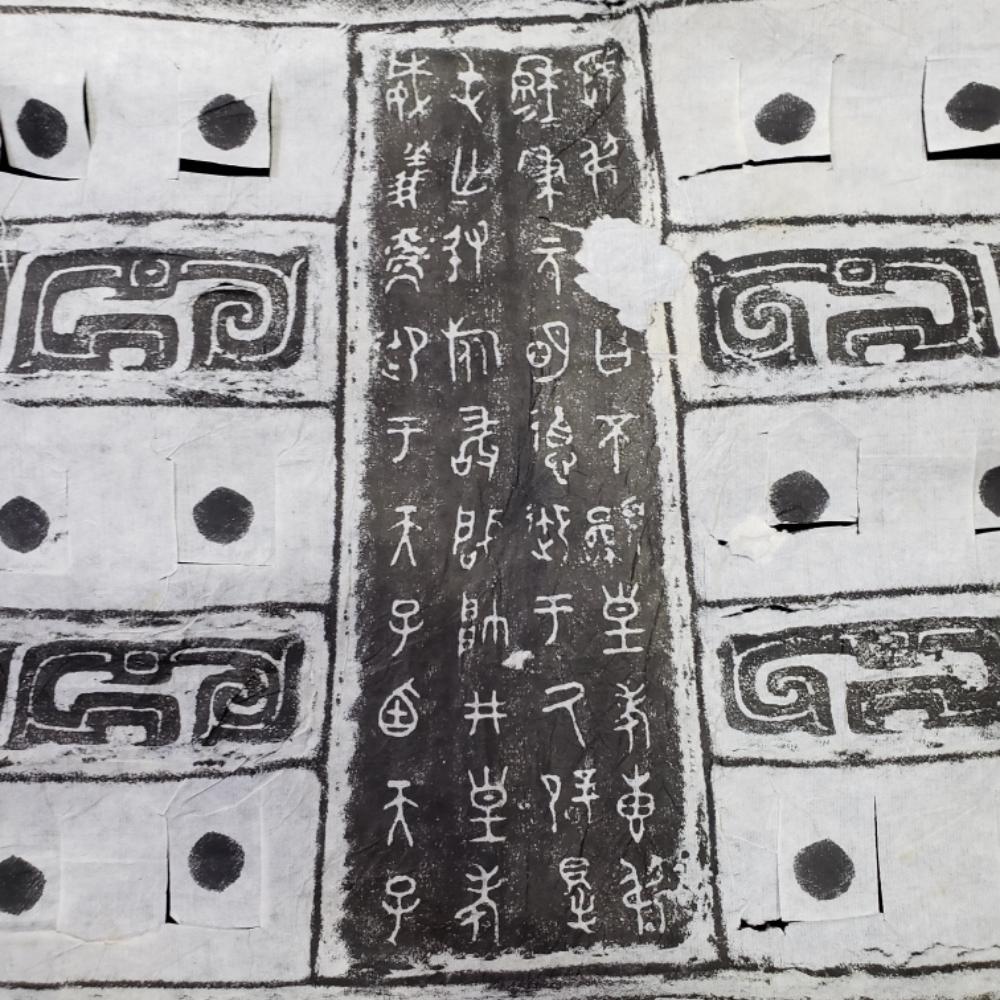 虢叔曰不顯皇考叀叔
穆=秉元明德御于氒辟䙷
屯亡敃旅敢肈帥井皇考
威義御于天子迺天子